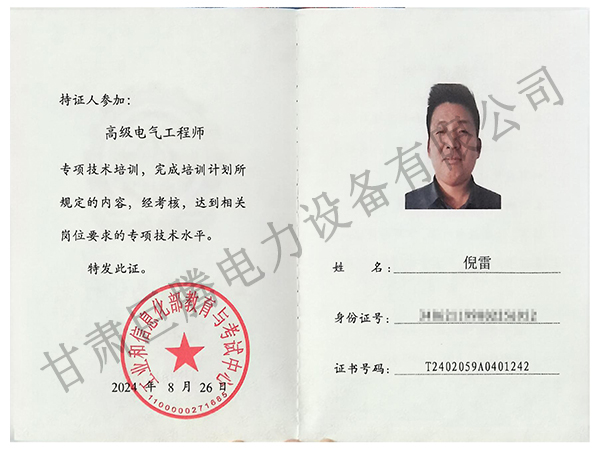 持证人参加：
高级电气工程师
专项技术培训，完成培训计划所
规定的内容，经考核，达到相关
岗位要求的专项技术水平。
特发此证。
工业和信息化部教育与考试中心
2024 年 8 月 26 日
1100000271685
姓 名： 倪雷
身份证号：
证书号码： T2402059A0401242
甘肃巨腾电力设备有限公司